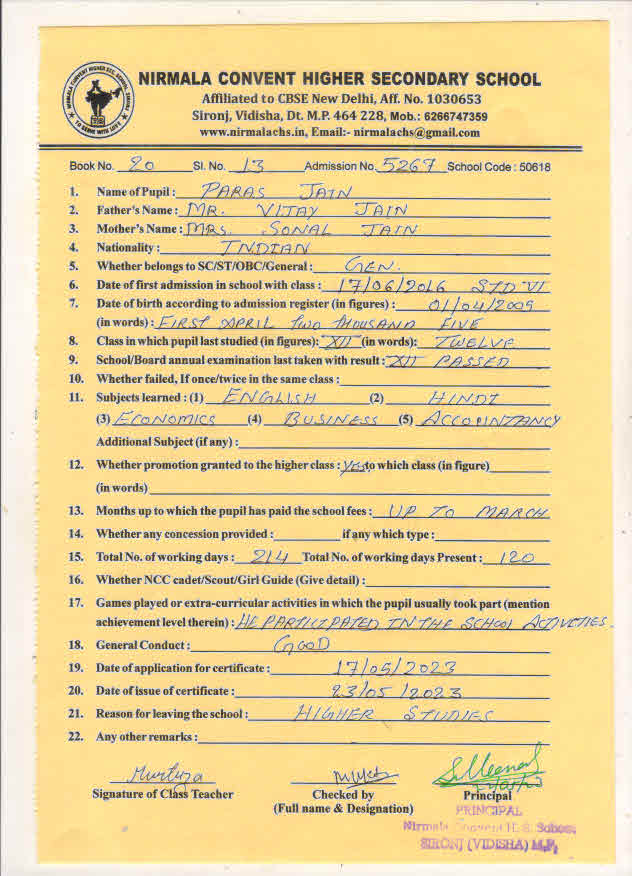 NIRMALA CONVENT HIGHER SECONDARY SCHOOL
Affiliated to CBSE New Delhi, Aff. No. 1030653
Sironj, Vidisha, Dt. M.P. 464 228, Mob.: 6266747359
www.nirmalachs.in, Email:- nirmalachs@gmail.com
NIRMALA CONVENT HIGHER SEC. SCHOOL, SIRONJ
TO SERVE WITH LOVE
Book No. 20 Sl. No. 13 Admission No. 5267 School Code : 50618
1. Name of Pupil : PARAS JAIN
2. Father's Name : MR. VIJAY JAIN
3. Mother's Name : MRS. SONAL JAIN
4. Nationality : INDIAN
5. Whether belongs to SC/ST/OBC/General : GEN.
6. Date of first admission in school with class : 17/06/2016 STD VI
7. Date of birth according to admission register (in figures) : 01/04/2005
(in words) : FIRST APRIL TWO THOUSAND FIVE
8. Class in which pupil last studied (in figures): "XII" (in words): TWELVE
9. School/Board annual examination last taken with result : XII PASSED
10. Whether failed, If once/twice in the same class :
11. Subjects learned : (1) ENGLISH (2) HINDI
(3) ECONOMICS (4) BUSINESS (5) ACCOUNTANCY
Additional Subject (if any) :
12. Whether promotion granted to the higher class : YES to which class (in figure)
(in words)
13. Months up to which the pupil has paid the school fees : UP TO MARCH
14. Whether any concession provided : if any which type :
15. Total No. of working days : 214 Total No. of working days Present : 120
16. Whether NCC cadet/Scout/Girl Guide (Give detail) :
17. Games played or extra-curricular activities in which the pupil usually took part (mention
achievement level therein) : HE PARTICIPATED IN THE SCHOOL ACTIVETIES.
18. General Conduct : GOOD
19. Date of application for certificate : 17/05/2023
20. Date of issue of certificate : 23/05/2023
21. Reason for leaving the school : HIGHER STUDIES
22. Any other remarks :
Murtuza
Signature of Class Teacher Checked by Principal
(Full name & Designation) PRINCIPAL
Nirmala Convent H. S. School,
SIRONJ (VIDISHA) M.P.